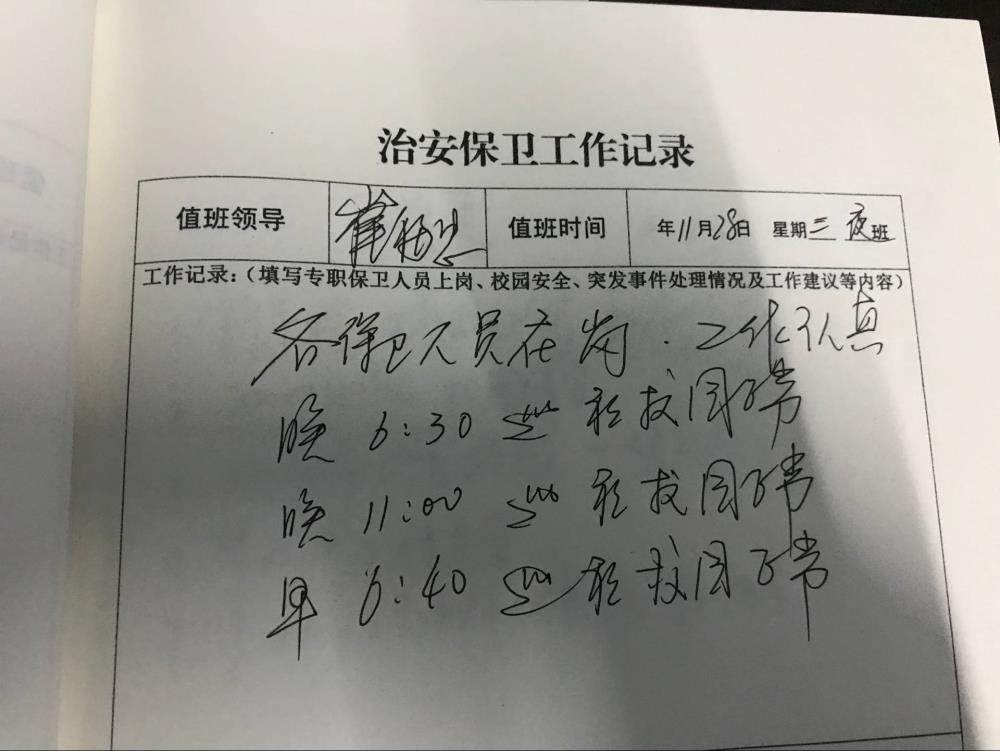 治安保卫工作记录
值班领导 值班时间 年11月28日 星期三 夜班
工作记录:(填写专职保卫人员上岗、校园安全、突发事件处理情况及工作建议等内容)
各保卫人员在岗.工作认真
晚 6:30 巡视校园正常
晚 11:00 巡视校园正常
早 6:40 巡视校园正常